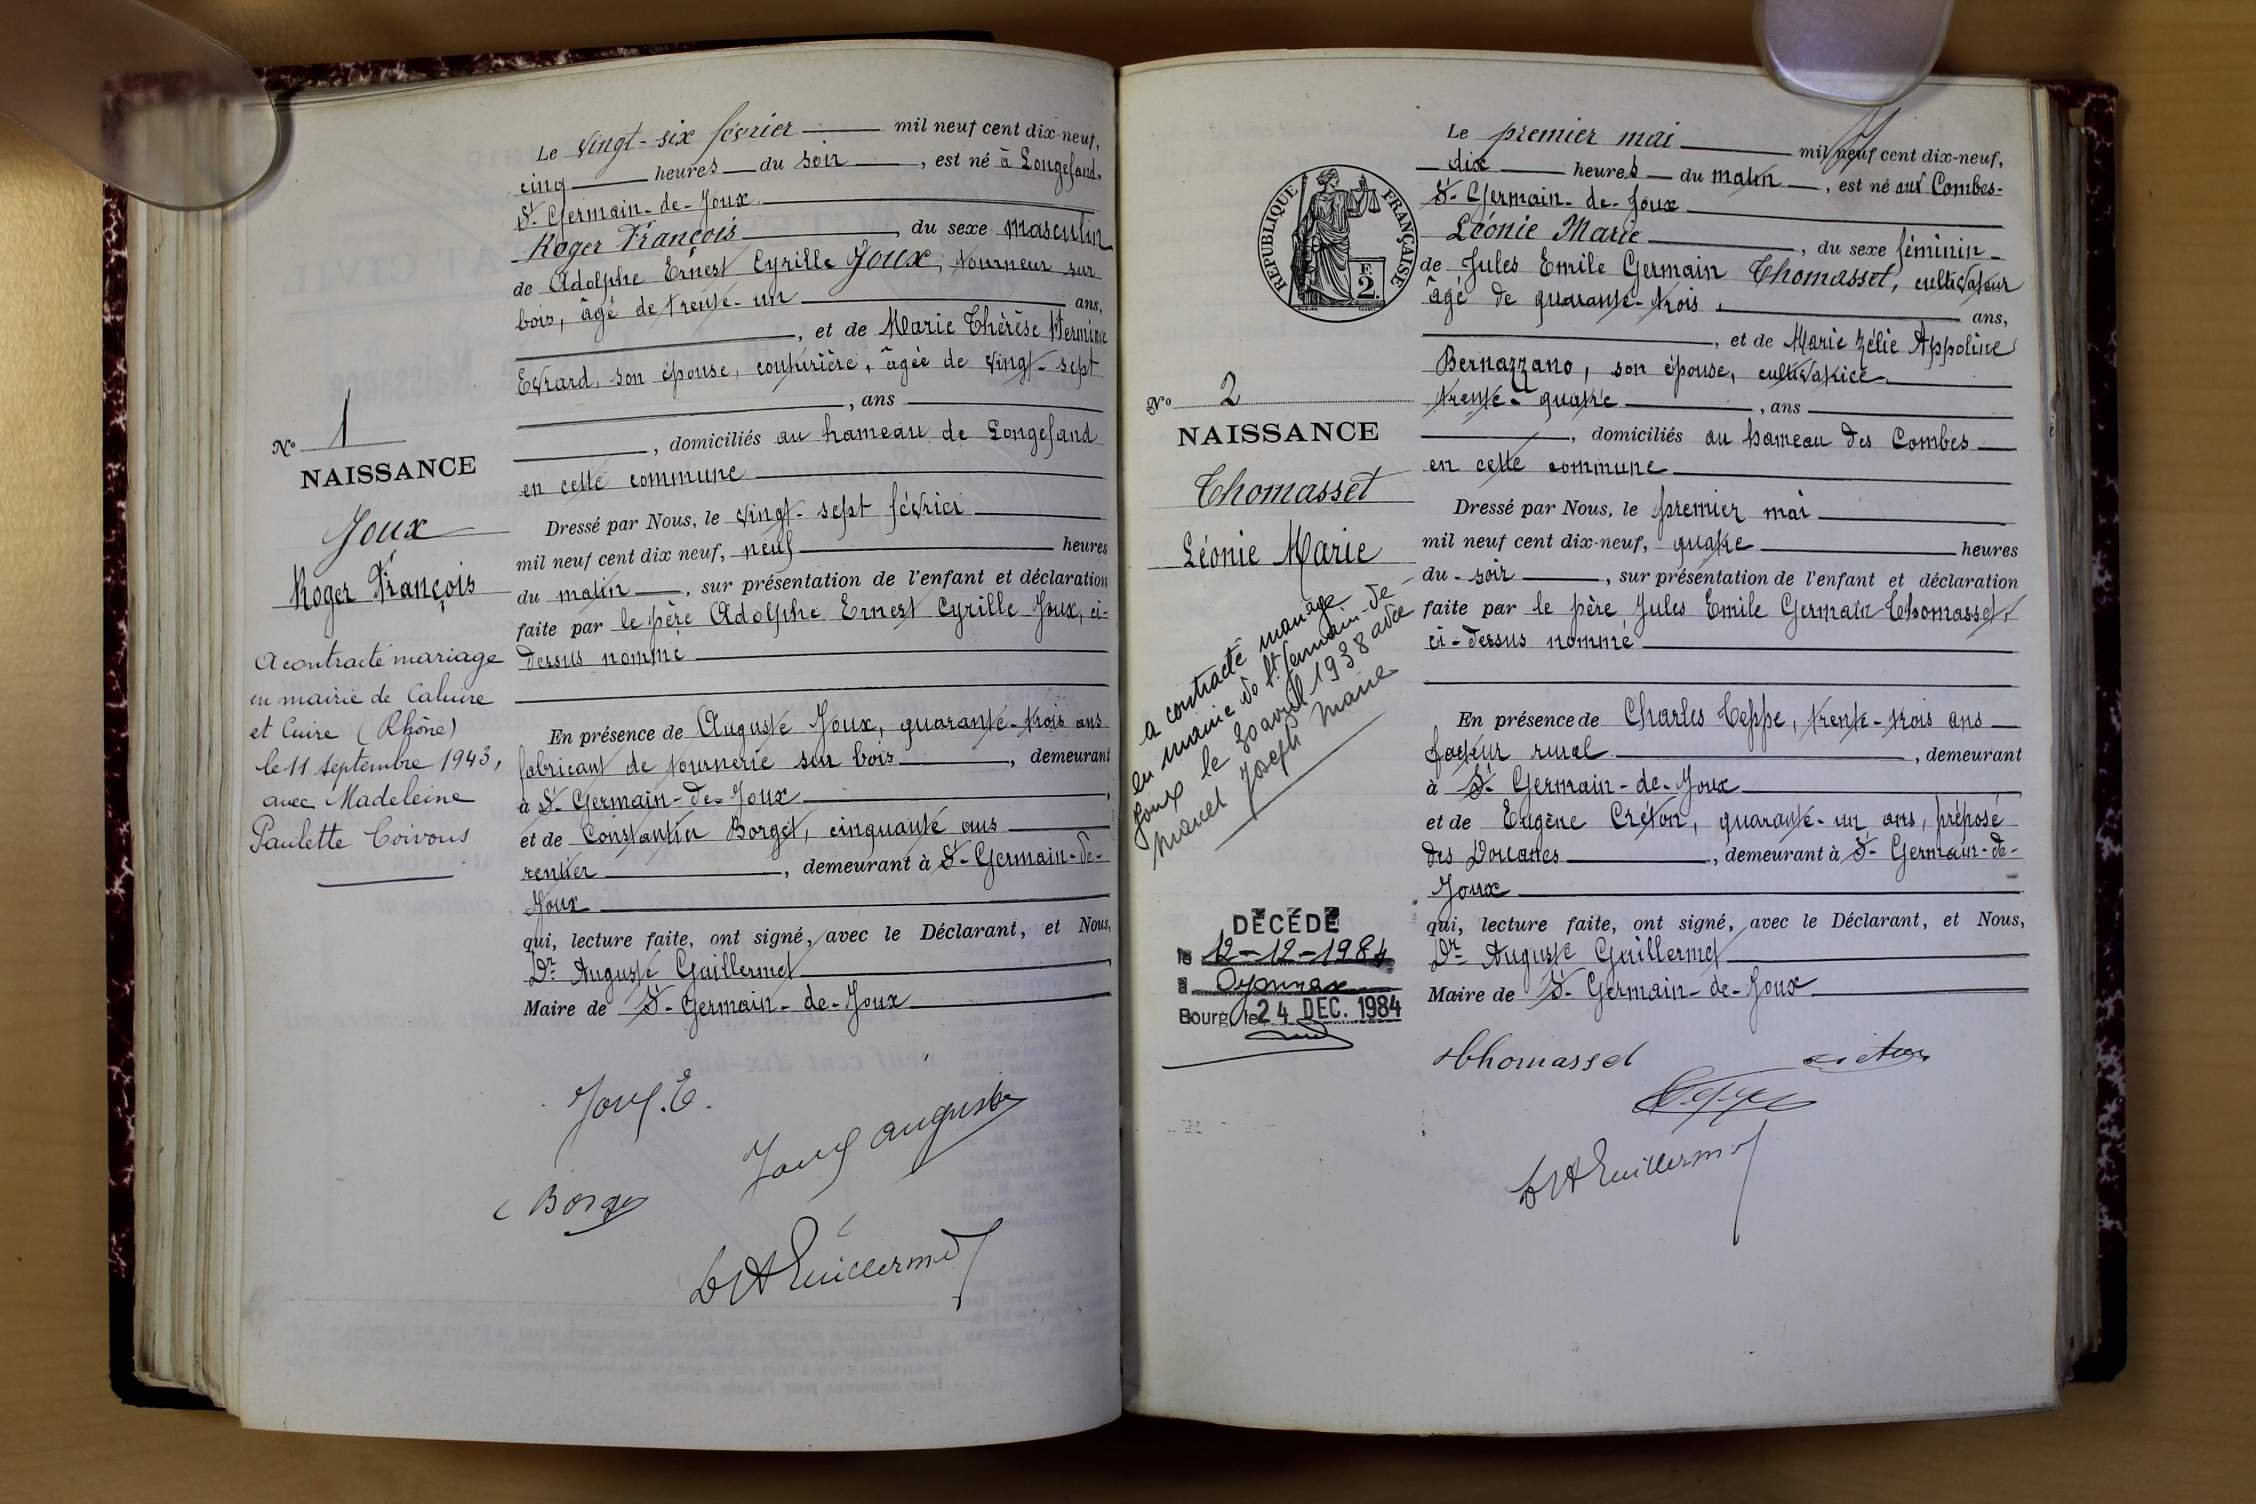 N° 1
NAISSANCE
Joux
Roger François
A contracté mariage
en mairie de Caluire
et Cuire (Rhône)
le 11 septembre 1943,
avec Madeleine
Paulette Coivous
Le vingt-six février mil neuf cent dix-neuf,
cinq heures du soir, est né à Longefand,
St-Germain-de-Joux
Roger François, du sexe masculin
de Adolphe Ernest Cyrille Joux, tourneur sur
bois, âgé de trente-un ans,
, et de Marie Thérèse Hermine
Evrard, son épouse, couturière, âgée de vingt-sept
, ans
, domiciliés au hameau de Longefand
en cette commune
Dressé par Nous, le vingt-sept février
mil neuf cent dix neuf, neuf heures
du matin, sur présentation de l'enfant et déclaration
faite par le père Adolphe Ernest Cyrille Joux, ci-
dessus nommé
En présence de Auguste Joux, quarante-trois ans
fabricant de tournerie sur bois, demeurant
à St-Germain-de-Joux,
et de Constantin Borget, cinquante ans
rentier, demeurant à St-Germain-de-
Joux
qui, lecture faite, ont signé, avec le Déclarant, et Nous,
Dr Auguste Guillermet
Maire de St-Germain-de-Joux
Joux. E.
Joux auguste
C Borget
Dr A Guillermet
RÉPUBLIQUE FRANÇAISE
F.
2.
N° 2
NAISSANCE
Thomasset
Léonie Marie
a contracté mariage
en mairie de St Germain-de-
Joux le 30 avril 1938 avec
Marcel Joseph Maire
DÉCÉDÉ
le 12-12-1984
à Oyonnax
Bourg, le 24 DEC. 1984
Le premier mai mil neuf cent dix-neuf,
dix heures du matin, est né aux Combes-
St-Germain-de-Joux
Léonie Marie, du sexe féminin
de Jules Emile Germain Thomasset, cultivateur
âgé de quarante-trois ans,
, et de Marie Zélie Appoline
Bernazzano, son épouse, cultivatrice
trente-quatre, ans
, domiciliés au hameau des Combes
en cette commune
Dressé par Nous, le premier mai
mil neuf cent dix-neuf, quatre heures
du soir, sur présentation de l'enfant et déclaration
faite par le père, Jules Emile Germain Thomasset,
ci-dessus nommé
En présence de Charles Teppe, trente-trois ans
facteur rural, demeurant
à St-Germain-de-Joux
et de Eugène Créton, quarante-un ans, préposé
des Douanes, demeurant à St-Germain-de-
Joux
qui, lecture faite, ont signé, avec le Déclarant, et Nous,
Dr Auguste Guillermet
Maire de St-Germain-de-Joux
Thomasset
Dr A Guillermet